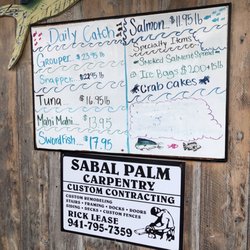 Daily Catch
Grouper $
Snapper
Tuna $16.95lb
Mahi Mahi $13.95
Swordfish $17.95
Salmon $11.95 lb
Specialty Items
Smoked Salmon Spread
Ice Bags $2.00
Crab Cakes
SABAL PALM
CARPENTRY
CUSTOM CONTRACTING
CUSTOM REMODELING
STAIRS • FRAMING • DOCKS • DOORS
SIDING • DECKS • CUSTOM FENCES
RICK LEASE
941-795-7359